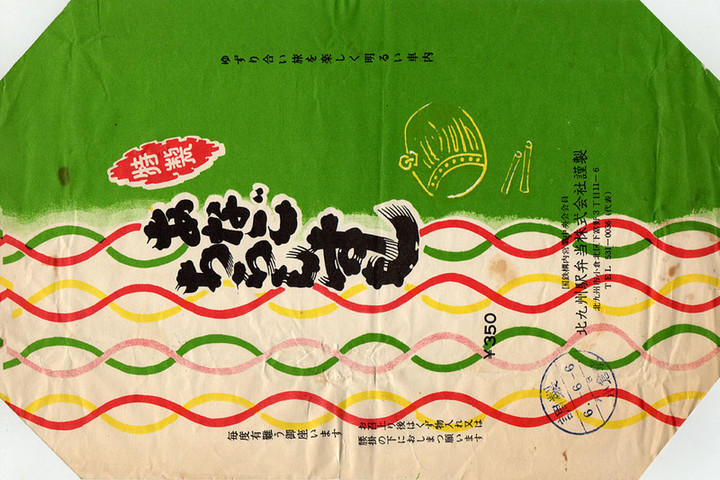 ゆずり合い旅を楽しく明るい車内
特製
あなご
ちらしずし
国鉄構内営業中央会会員
北九州駅弁当株式会社謹製
北九州市小倉北区下富野3丁目11-6
TEL 531-0036(代表)
¥350
6.-6.-6
小倉
お召上り後はくず物入れ又は
腰掛の下におしまつ願います
毎度有難う御座います